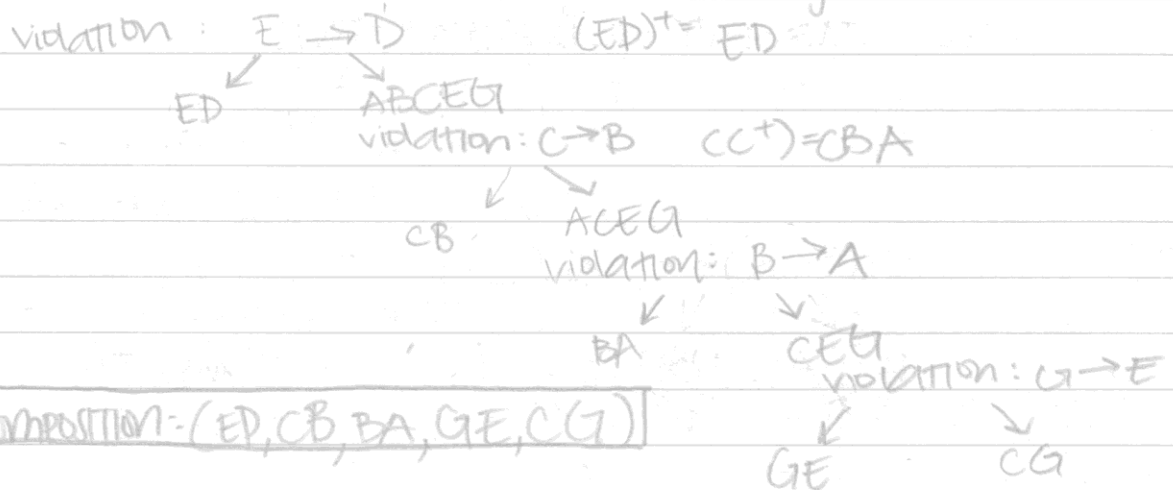 violation : E → D (ED)+ = ED
ED ABCEG
violation: C→B (C+)=CBA
CB ACEG
violation: B→A
BA CEG
violation: G→E
mposition:(ED,CB,BA,GE,CG)
GE CG